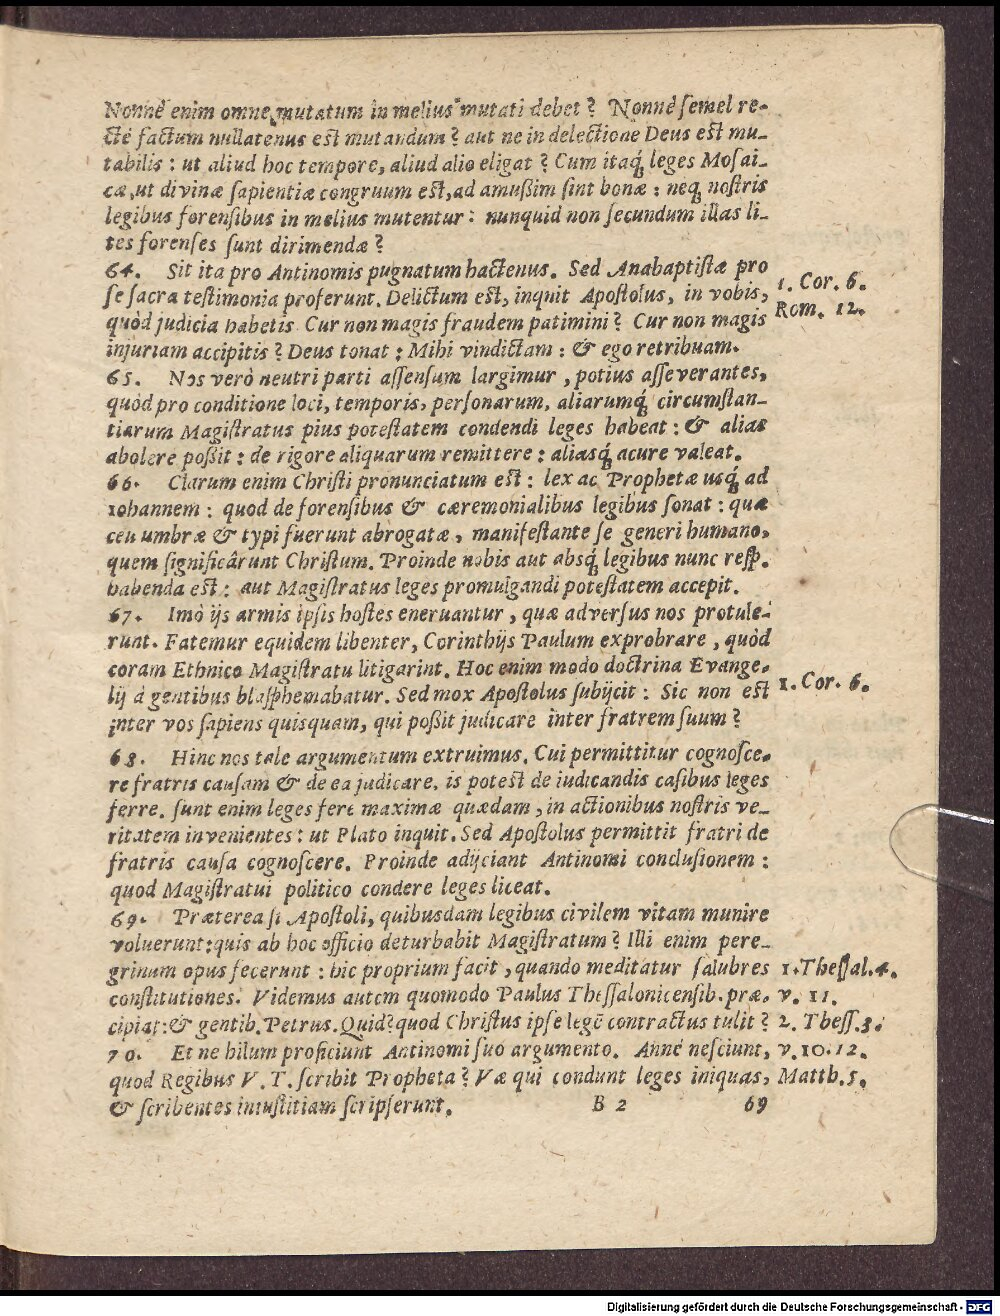 Nonnè enim omne mutatum in melius mutati debet? Nonnè semel re-
ctè factum nullatenus est mutandum? aut ne in delectione Deus est mu-
tabilis: ut aliud hoc tempore, aliud alio eligat? Cum itaq́; leges Mosai-
cæ, ut divinæ sapientiæ congruum est, ad amußim sint bonæ: neq́; nostris
legibus forensibus in melius mutentur: nunquid non secundum illas li-
tes forenses sunt dirimendæ?
64. Sit ita pro Antinomis pugnatum hactenus. Sed Anabaptistæ pro
se sacra testimonia proferunt. Delictum est, inquit Apostolus, in vobis, 1. Cor. 6.
quòd judicia habetis. Cur non magis fraudem patimini? Cur non magis Rom. 12.
injuriam accipitis? Deus tonat: Mihi vindictam: & ego retribuam.
65. Nos verò neutri parti assensum largimur, potius asseverantes,
quòd pro conditione loci, temporis, personarum, aliarumq́; circumstan-
tiarum Magistratus pius potestatem condendi leges habeat: & alias
abolere poßit: de rigore aliquarum remittere: aliasq́; acure valeat.
66. Clarum enim Christi pronunciatum est: lex ac Prophetæ usq́; ad
Iohannem: quod de forensibus & cæremonialibus legibus sonat: quæ
ceu umbræ & typi fuerunt abrogatæ, manifestante se generi humano,
quem significârunt Christum. Proinde nobis aut absq́; legibus nunc resp.
habenda est: aut Magistratus leges promulgandi potestatem accepit.
67. Imò ijs armis ipsis hostes eneruantur, quæ adversus nos protule-
runt. Fatemur equidem libenter, Corinthijs Paulum exprobrare, quòd
coram Ethnico Magistratu litigarint. Hoc enim modo doctrina Evange-
lij à gentibus blasphemabatur. Sed mox Apostolus subijcit: Sic non est 1. Cor. 6.
inter vos sapiens quisquam, qui poßit judicare inter fratrem suum?
68. Hinc nos tale argumentum extruimus. Cui permittitur cognosce-
re fratris causam & de ea judicare, is potest de iudicandis casibus leges
ferre. sunt enim leges fere maximæ quædam, in actionibus nostris ve-
ritatem invenientes: ut Plato inquit. Sed Apostolus permittit fratri de
fratris causa cognoscere. Proinde adijciant Antinomi conclusionem:
quod Magistratui politico condere leges liceat.
69. Præterea si Apostoli, quibusdam legibus civilem vitam munire
voluerunt: quis ab hoc officio deturbabit Magistratum? Illi enim pere-
grinum opus fecerunt: hic proprium facit, quando meditatur salubres 1. Thessal. 4.
constitutiones. Videmus autem quomodo Paulus Thessalonicensib. præ- v. 11.
cipiat: & gentib. Petrus. Quid? quod Christus ipse legē contractus tulit? 2. Thess. 3.
70. Et ne hilum proficiunt Antinomi suo argumento. Annè nesciunt, v. 10. 12.
quod Regibus V. T. scribit Propheta? Væ qui condunt leges iniquas, Matth. 5.
& scribentes iniustitiam scripserunt. B 2 69
Digitalisierung gefördert durch die Deutsche Forschungsgemeinschaft - DFG